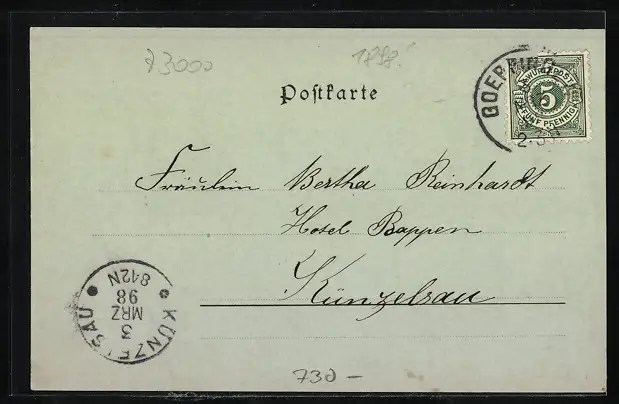 73000
1898.
Postkarte
GOEPPING
K.WÜRTT.POST
5
FÜNF PFENNIG
Fräulein Bertha Reinhardt
Hotel Bappen
Künzelsau
KÜNZELSAU
3
MRZ
98
842N
730 –